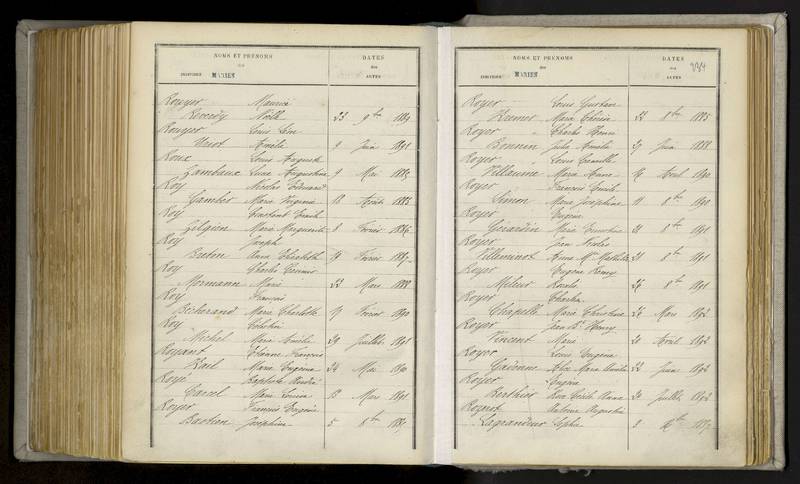 NOMS ET PRÉNOMS
des
MARIÉS
DATES
des
ACTES
Rouyer Maurice
Noël 23 9bre 1889
Rouyer Louis Léon
Uriot Amélie 9 Juin 1891
Roux Louis Auguste
Gambaux Lucie Augustine 9 Mai 1885
Roy Nicolas Edouard
Gambier Marie Virginie 18 Août 1885
Roy Constant Emile
Marie Marguerite 8 Février 1886
Roy Joseph
Breton Anne Elisabeth 19 Février 1887
Roy Charles
Mormann Marie 22 Mars 1888
Roy François
Marie Charlotte 11 Février 1890
Roy Célestin
Michel Marie Amélie 29 Juillet 1891
Royant Etienne François
Marie Eugénie 24 Mai 1890
Royé Baptiste
Carcel Marie Louise 13 Mars 1891
Royer François Eugène
Bastien Joséphine 5 8bre
NOMS ET PRÉNOMS
des
MARIÉS
DATES
des
ACTES
334
Royer Louis Gustave
Kremer Marie Thérèse 22 8bre 1885
Royer Charles Henri
Bonnin Julie Amélie 27 Juin 1888
Royer Louis Camille
Villaume Marie Anne 16 Avril 1890
Royer François Emile
Simon Marie Joséphine 11 8bre 1890
Royer Eugène
Gérardin Marie Ernestine 21 8bre 1891
Royer Jean Nicolas
Villeminot Anna Mie Mathilde 21 8bre 1891
Royer Eugène Remy
Milleur Rosalie 26 8bre 1891
Royer Charles
Chapelle Marie Christine 26 Mars 1892
Royer Jean Bte Henry
Vincent Marie 20 Avril 1892
Royer Louis Eugène
Marie 22 Juin 1892
Royer Eugène
Berthier Cécile Anna 20 Juillet 1892
Royet Augustin
Lagrandeur Sophie 3